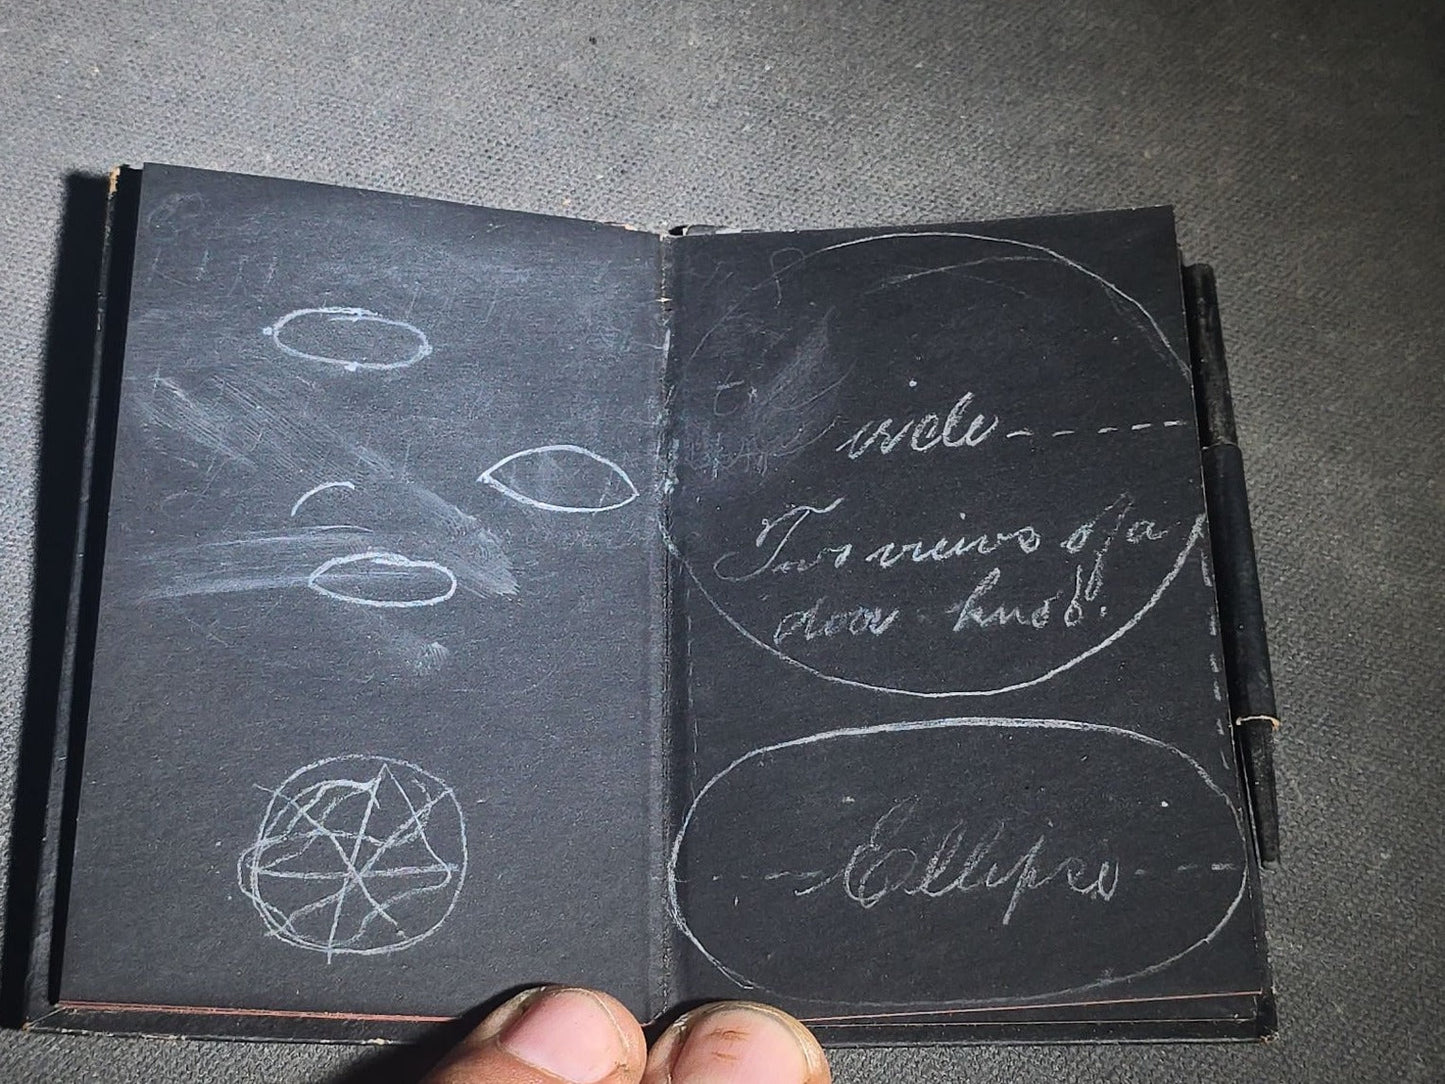 ircle
Two views of a
door-knob.
Ellipse